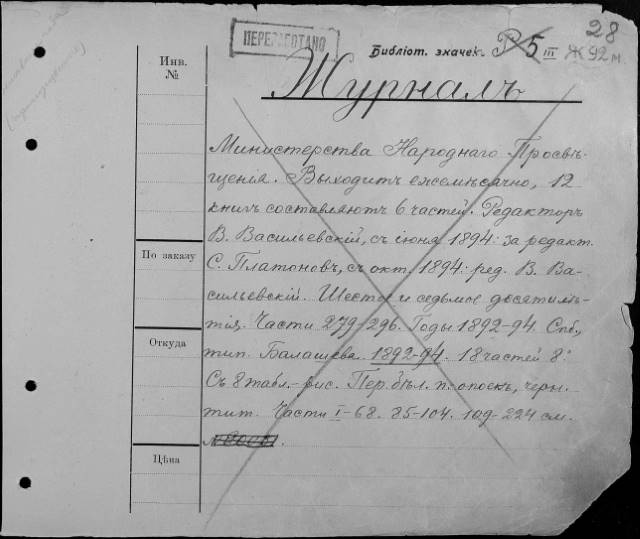 ПЕРЕРАБОТАНО
28
Библіот. значек. Р 5 III Ж 92 м.
Инв.
№
Журналъ
Министерства Народнаго Просвѣ-
щенія. Выходитъ ежемѣсячно, 12
книгъ составляютъ 6 частей. Редакторъ
В. Васильевскій, съ іюня 1894: за редакт.
По заказу
С. Платоновъ, съ окт. 1894: ред. В. Ва-
сильевскій. Шестое и седьмое десятилѣ-
тія. Части 279-296. Годы 1892-94. Спб.,
Откуда
тип. Балашева. 1892-94. 18 частей 8°.
Съ 8 табл.-рис. Пер. бѣл. п. опоек, черн.
тит. Части I-68. 85-104. 109-224 см.
Цѣна